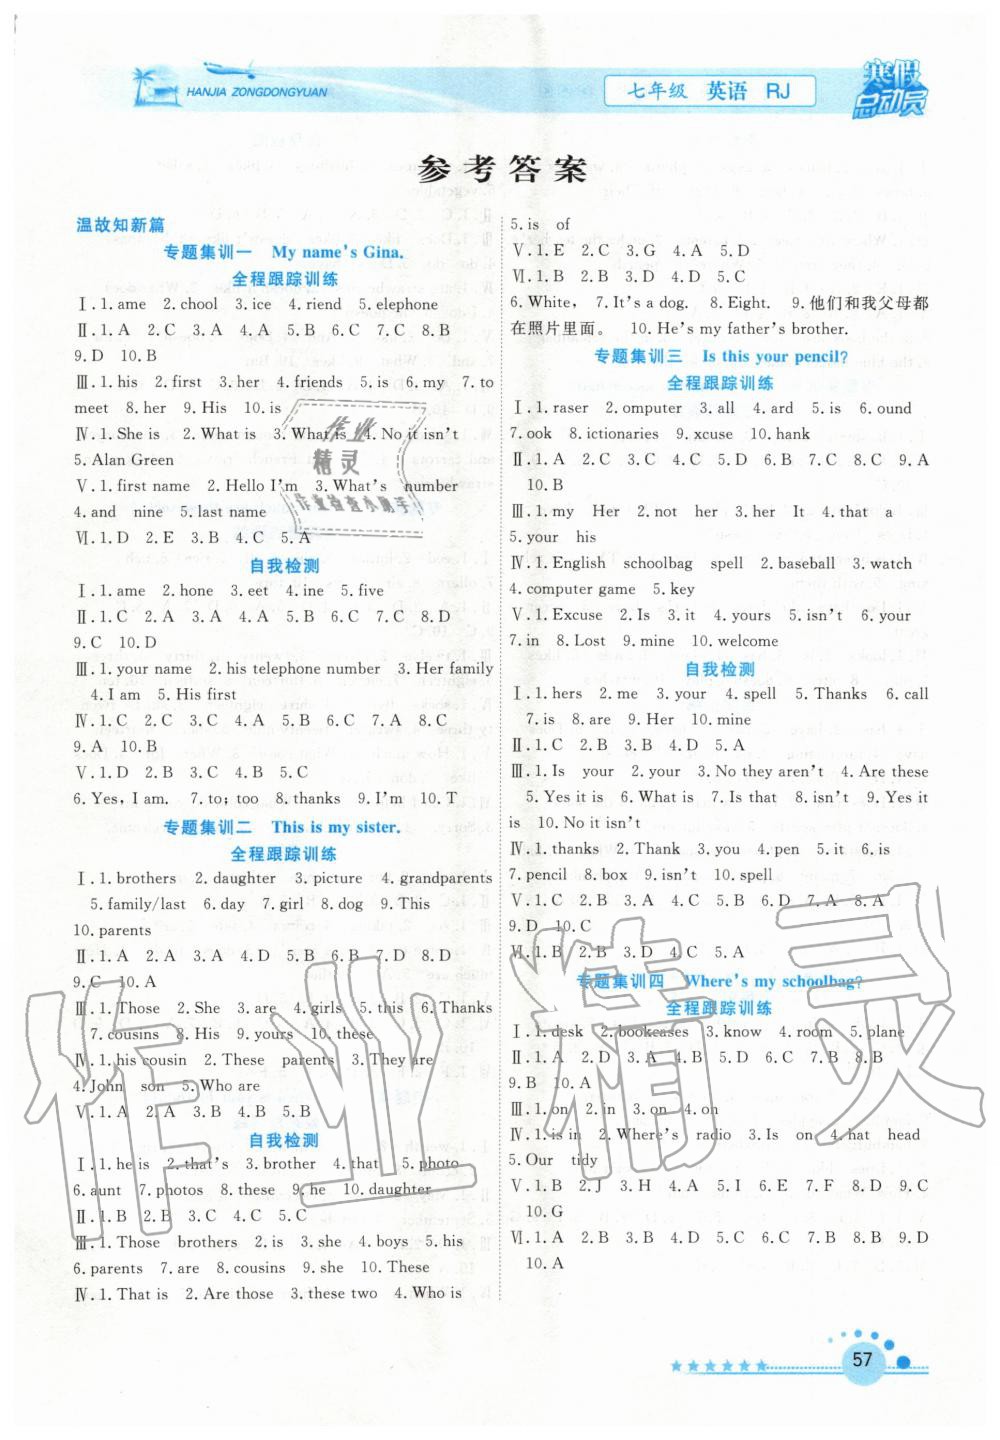 HANJIA ZONGDONGYUAN
七年级 英语 RJ
寒假
总动员
参考答案
温故知新篇
专题集训一 My name's Gina.
全程跟踪训练
Ⅰ.1.ame 2.chool 3.ice 4.riend 5.elephone
Ⅱ.1.A 2.C 3.A 4.A 5.B 6.C 7.C 8.B
9.D 10.B
Ⅲ.1.his 2.first 3.her 4.friends 5.is 6.my 7.to
meet 8.her 9.His 10.is
Ⅳ.1.She is 2.What is 3.What is 4.No it isn't
5.Alan Green
Ⅴ.1.first name 2.Hello I'm 3.What's number
4.and nine 5.last name
Ⅵ.1.D 2.E 3.B 4.C 5.A
自我检测
Ⅰ.1.ame 2.hone 3.eet 4.ine 5.five
Ⅱ.1.D 2.A 3.B 4.C 5.B 6.C 7.C 8.D
9.C 10.D
Ⅲ.1.your name 2.his telephone number 3.Her family
4.I am 5.His first
Ⅳ.1.C 2.C 3.C 4.A 5.B 6.C 7.A 8.C
9.A 10.B
Ⅴ.1.D 2.A 3.B 4.B 5.C
6.Yes, I am. 7.to; too 8.thanks 9.I'm 10.T
专题集训二 This is my sister.
全程跟踪训练
Ⅰ.1.brothers 2.daughter 3.picture 4.grandparents
5.family/last 6.day 7.girl 8.dog 9.This
10.parents
Ⅱ.1.B 2.A 3.A 4.D 5.B 6.B 7.D 8.D
9.C 10.A
Ⅲ.1.Those 2.She 3.are 4.girls 5.this 6.Thanks
7.cousins 8.His 9.yours 10.these
Ⅳ.1.his cousin 2.These parents 3.They are
4.John son 5.Who are
Ⅴ.1.A 2.A 3.B 4.B 5.B
自我检测
Ⅰ.1.he is 2.that's 3.brother 4.that 5.photo
6.aunt 7.photos 8.these 9.he 10.daughter
Ⅱ.1.B 2.B 3.C 4.C 5.C
Ⅲ.1.Those brothers 2.is 3.she 4.boys 5.his
6.parents 7.are 8.cousins 9.she 10.These
Ⅳ.1.That is 2.Are those 3.these two 4.Who is
5.is of
Ⅴ.1.E 2.C 3.G 4.A 5.D
Ⅵ.1.D 2.B 3.C 4.B 5.C
6.White, 7.It's a dog. 8.Eight. 9.他们和我父母都
在照片里面。 10.He's my father's brother.
专题集训三 Is this your pencil?
全程跟踪训练
Ⅰ.1.raser 2.omputer 3.all 4.ard 5.is 6.ound
7.ook 8.ictionaries 9.xcuse 10.hank
Ⅱ.1.A 2.C 3.C 4.C 5.B 6.C 7.B 8.C 9.A
10.B
Ⅲ.1.my Her 2.not her 3.her It 4.that a
5.your his
Ⅳ.1.English schoolbag spell 2.baseball 3.watch
4.computer game 5.key
Ⅴ.1.Excuse 2.Is 3.it 4.yours 5.isn't 6.your
7.in 8.Lost 9.mine 10.welcome
自我检测
Ⅰ.1.hers 2.me 3.your 4.spell 5.Thanks 6.call
7.is 8.are 9.Her 10.mine
Ⅱ.1.C 2.B 3.B 4.D 5.A
Ⅲ.1.Is your 2.your 3.No they aren't 4.Are these
5.Yes it is 6.What is 7.Is that 8.isn't 9.Yes it
is 10.No it isn't
Ⅳ.1.thanks 2.Thank 3.you 4.pen 5.it 6.is
7.pencil 8.box 9.isn't 10.spell
Ⅴ.1.C 2.B 3.A 4.B 5.C 6.D 7.A 8.A
9.D 10.C
Ⅵ.1.B 2.B 3.D 4.C 5.A
专题集训四 Where's my schoolbag?
全程跟踪训练
Ⅰ.1.desk 2.bookcases 3.know 4.room 5.plane
Ⅱ.1.A 2.D 3.A 4.B 5.D 6.D 7.B 8.B
9.B 10.A
Ⅲ.1.on 2.in 3.on 4.on
Ⅳ.1.is in 2.Where's radio 3.Is on 4.hat head
5.Our tidy
Ⅴ.1.B 2.J 3.H 4.A 5.I 6.E 7.F 8.D 9.C
10.G
Ⅵ.1.A 2.B 3.D 4.B 5.C 6.C 7.B 8.B 9.D
10.A
57
作业
精灵
作业检查小助手
作业精灵